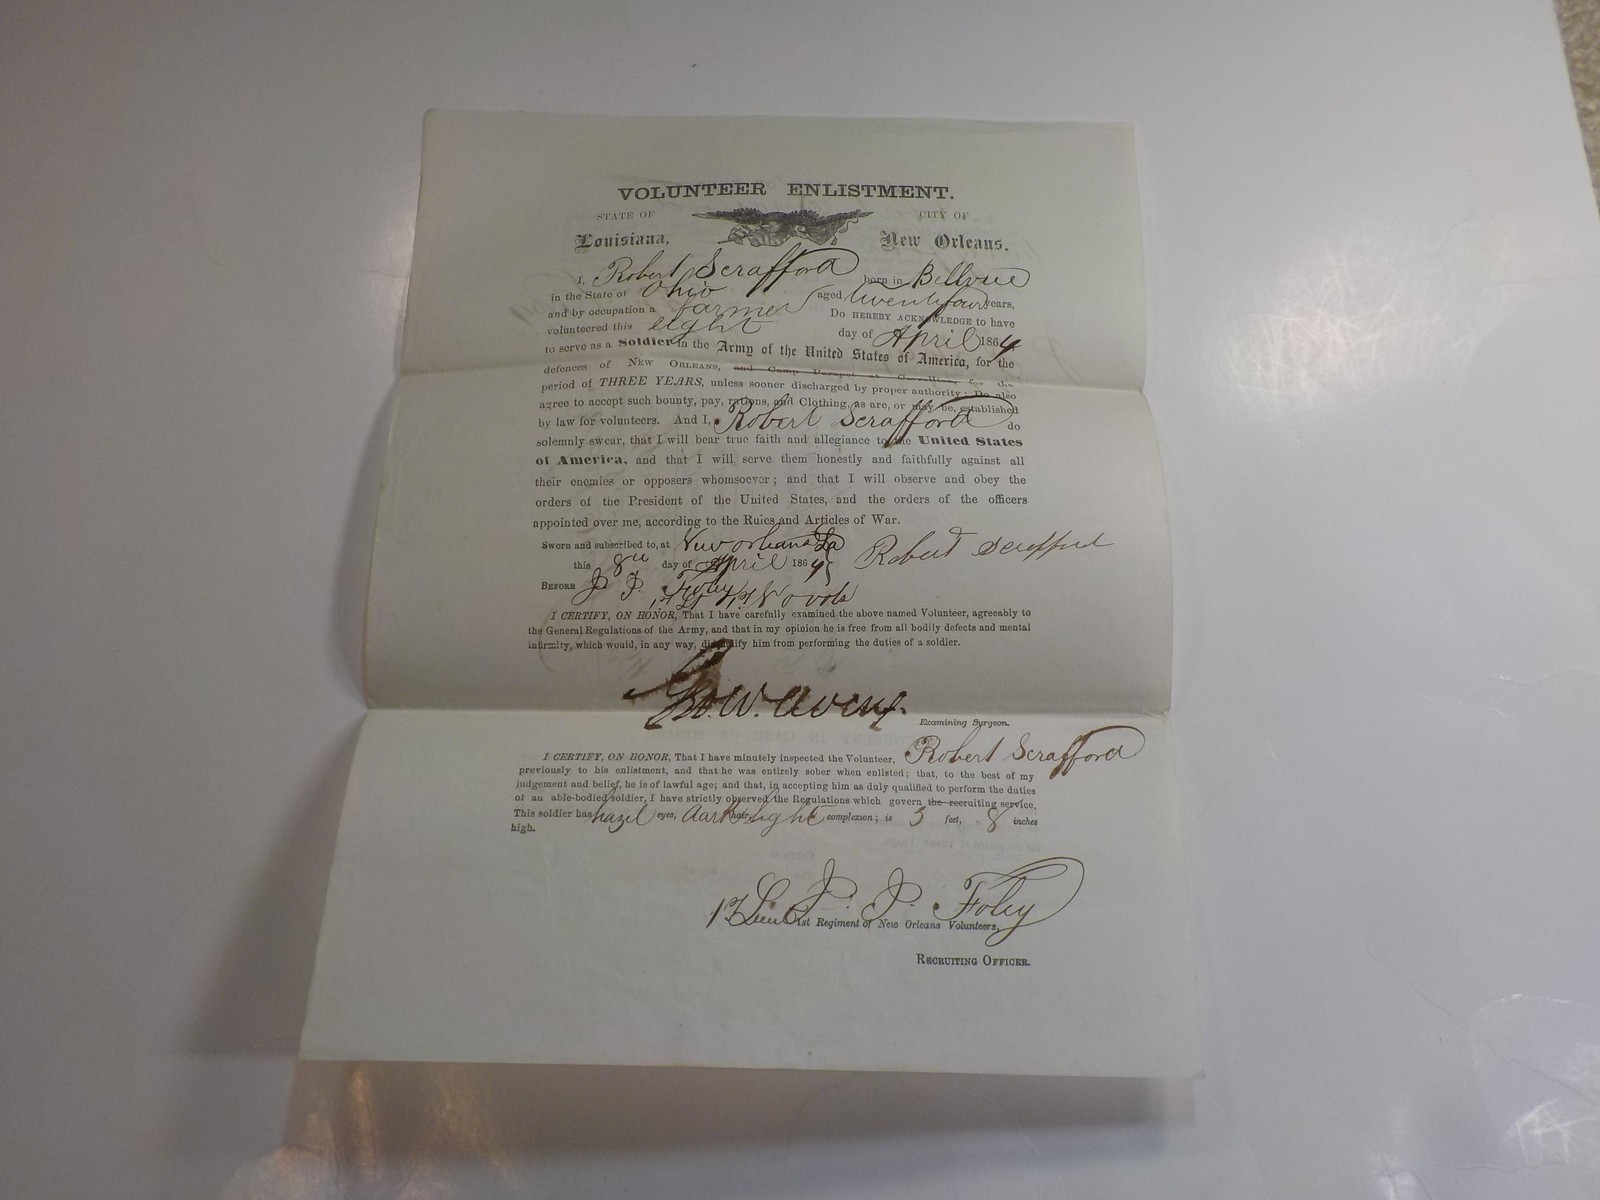 VOLUNTEER ENLISTMENT.
STATE OF CITY OF
Louisiana, New Orleans.
I, Robert Scrafford born in Bellvue
in the State of Ohio aged twentyfour years,
and by occupation a farmer Do HEREBY ACKNOWLEDGE to have
volunteered this eight day of April 1864
to serve as a Soldier in the Army of the United States of America, for the
defences of NEW ORLEANS, and Camp Parapet at Carrollton, for the
period of THREE YEARS, unless sooner discharged by proper authority; Do also
agree to accept such bounty, pay, rations, and Clothing, as are, or may be, established
by law for volunteers. And I, Robert Scrafford do
solemnly swear, that I will bear true faith and allegiance to the United States
of America, and that I will serve them honestly and faithfully against all
their enemies or opposers whomsoever; and that I will observe and obey the
orders of the President of the United States, and the orders of the officers
appointed over me, according to the Rules and Articles of War.
Sworn and subscribed to, at New orleans La Robert Scrafford
this 8th day of April 1864
BEFORE J. P. Foley
1st Lt 1st N O vols
I CERTIFY, ON HONOR, That I have carefully examined the above named Volunteer, agreeably to
the General Regulations of the Army, and that in my opinion he is free from all bodily defects and mental
infirmity, which would, in any way, disqualify him from performing the duties of a soldier.
Geo. W. Avery.
Examining Surgeon.
I CERTIFY, ON HONOR, That I have minutely inspected the Volunteer, Robert Scrafford
previously to his enlistment, and that he was entirely sober when enlisted; that, to the best of my
judgement and belief, he is of lawful age; and that, in accepting him as duly qualified to perform the duties
of an able-bodied soldier, I have strictly observed the Regulations which govern the recruiting service.
This soldier has hazel eyes, dark hair, light complexion; is 5 feet, 8 inches
high.
1st Lieut J. P. Foley
1st Regiment of New Orleans Volunteers,
RECRUITING OFFICER.